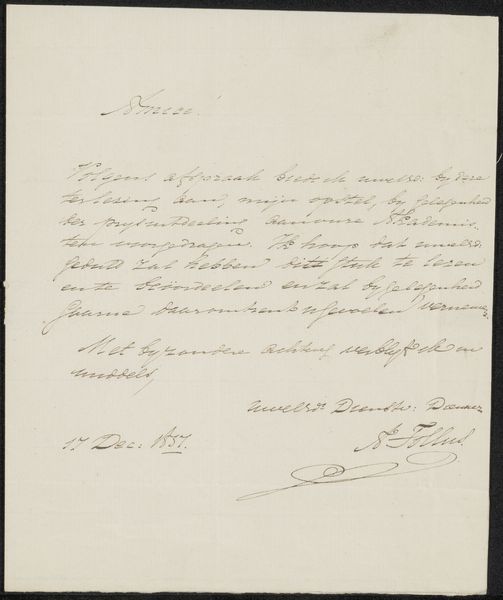 Amice!
Volgens afspraak bied ik uweled: by deze
ter lezing aan, mijn opstel, by gelegenheid
der prysuitdeeling aan onze Akademie
voorgedragen. Ik hoop dat uweled:
geduld zal hebben dit stuk te lezen
en te beoordeelen en zal by gelegenheid
gaarne daaromtrent gevoelen vernemen
Met byzondere achting verblyf ik in
middels,
uweled: Dienstw: Dienaar
17 Dec: 1837.
Tollus